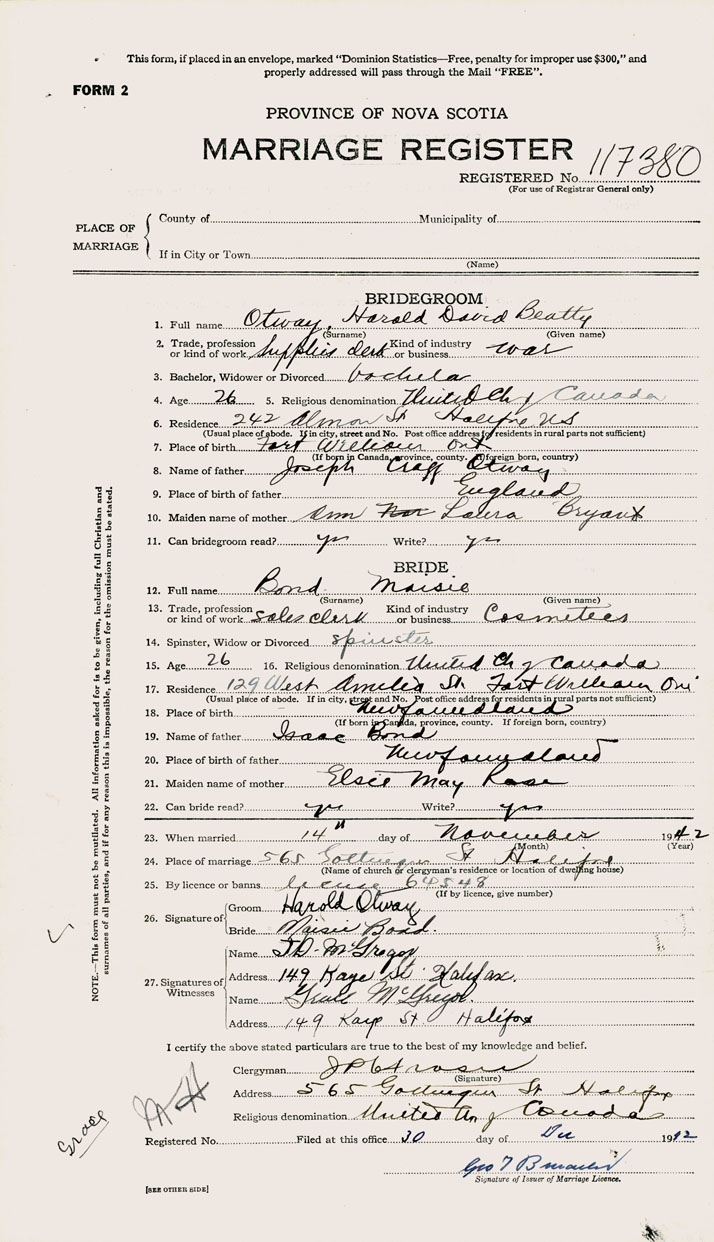 This form, if placed in an envelope, marked "Dominion Statistics—Free, penalty for improper use $300," and
properly addressed will pass through the Mail "FREE".
FORM 2
PROVINCE OF NOVA SCOTIA
MARRIAGE REGISTER
REGISTERED No. 117380
(For use of Registrar General only)
PLACE OF MARRIAGE
County of Municipality of
If in City or Town
(Name)
BRIDEGROOM
1. Full name Otway, Harold David Beatty
(Surname) (Given name)
2. Trade, profession or kind of work Supplies clerk Kind of industry or business war
3. Bachelor, Widower or Divorced bachelor
4. Age 26 5. Religious denomination United Ch of Canada
6. Residence 242 Almon St Halifax NS
(Usual place of abode. If in city, street and No. Post office address for residents in rural parts not sufficient)
7. Place of birth Fort William Ont
(If born in Canada, province, county. If foreign born, country)
8. Name of father Joseph Otway
9. Place of birth of father England
10. Maiden name of mother Ann Laura Bryant
11. Can bridegroom read? yes Write? yes
BRIDE
12. Full name Bond Maisie
(Surname) (Given name)
13. Trade, profession or kind of work sales clerk Kind of industry or business Cosmetics
14. Spinster, Widow or Divorced spinster
15. Age 26 16. Religious denomination United Ch of Canada
17. Residence 129 West Amelia St Fort William Ont
(Usual place of abode. If in city, street and No. Post office address for residents in rural parts not sufficient)
18. Place of birth Newfoundland
(If born in Canada, province, county. If foreign born, country)
19. Name of father Isaac Bond
20. Place of birth of father Newfoundland
21. Maiden name of mother Elsie May Rose
22. Can bride read? yes Write? yes
23. When married 14" day of November 1942
(Month) (Year)
24. Place of marriage 565 Gottingen St Halifax
(Name of church or clergyman's residence or location of dwelling house)
25. By licence or banns license 64548
(If by licence, give number)
26. Signature of
Groom Harold Otway
Bride Maisie Bond.
27. Signatures of Witnesses
Name McGregor
Address 149 Kaye St. Halifax.
Name McGregor.
Address 149 Kaye St Halifax
I certify the above stated particulars are true to the best of my knowledge and belief.
Clergyman
(Signature)
Address 565 Gottingen St Halifax
Religious denomination United Ch of Canada
Registered No. Filed at this office 30 day of Dec 1942
Geo
Signature of Issuer of Marriage Licence.
[SEE OTHER SIDE]
NOTE.—This form must not be mutilated. All information asked for is to be given, including full Christian and
surnames of all parties, and if for any reason this is impossible, the reason for the omission must be stated.
Grace